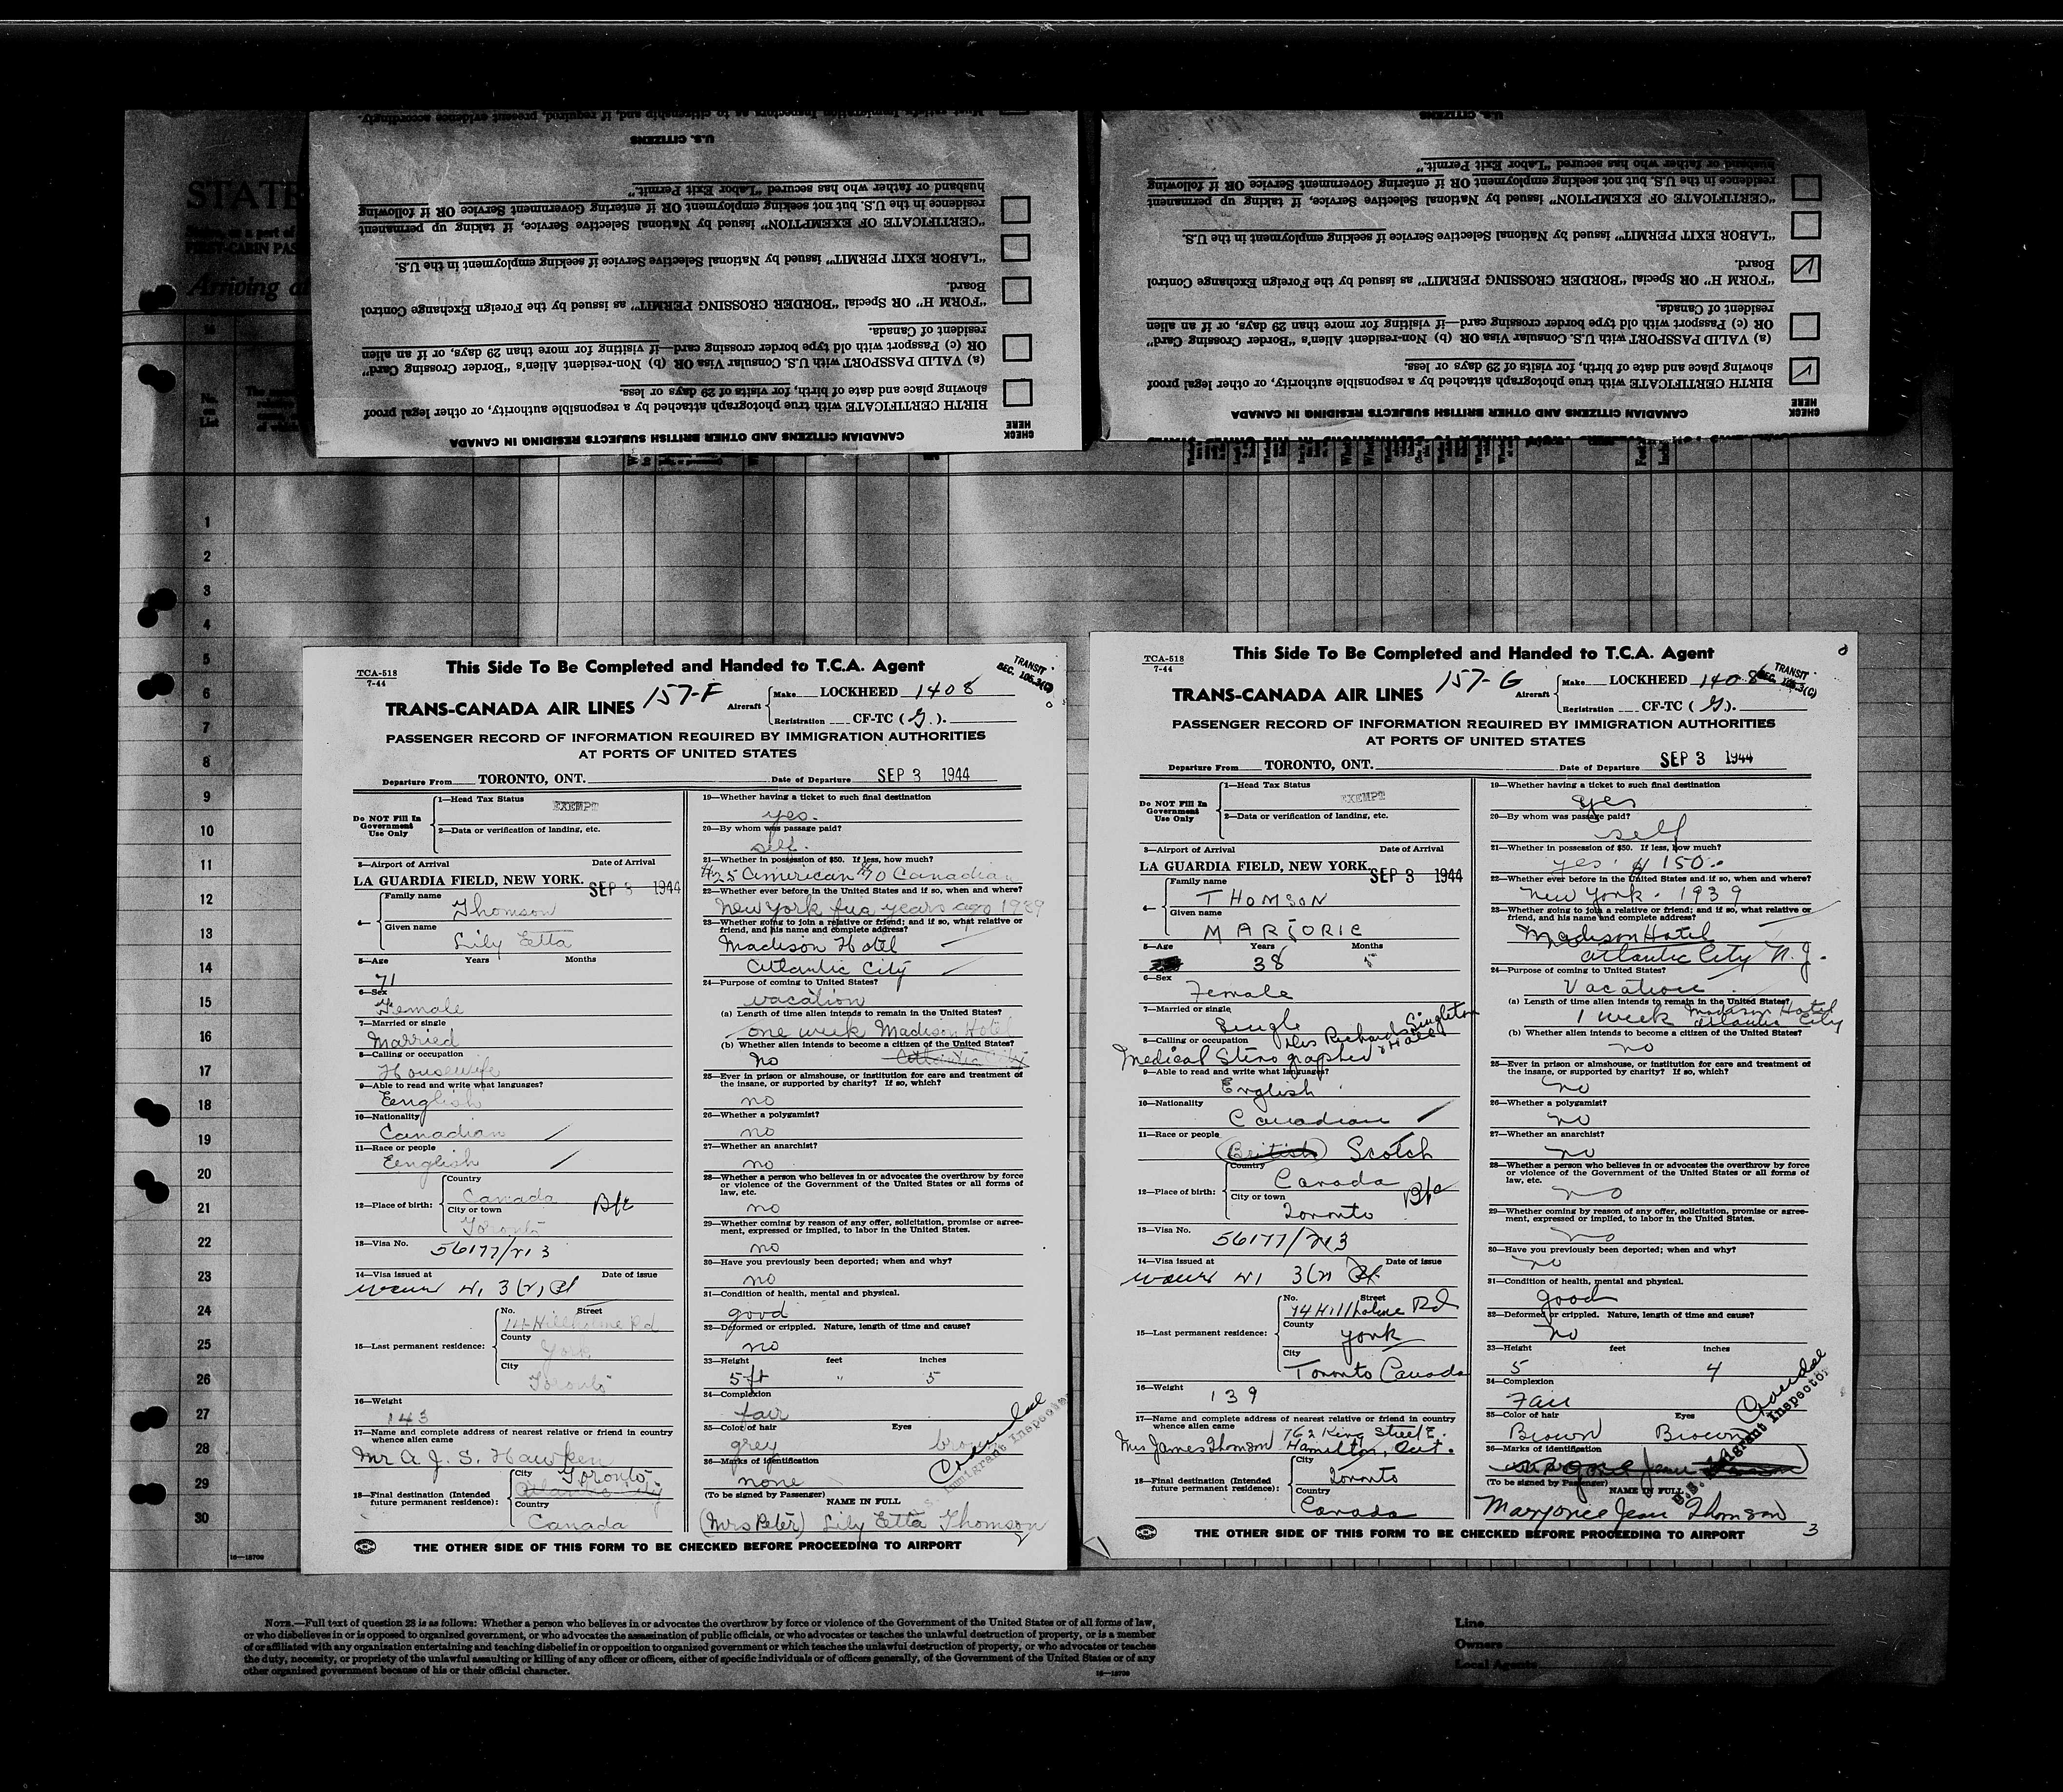 STATE
FIRST-CABIN PAS
Arriving at
Must satisfy Immigration Inspectors as to citizenship and, if required, present evidence accordingly.
U.S. CITIZENS
husband or father who has secured "Labor Exit Permit."
residence in the U.S. but not seeking employment OR if entering Government Service OR if following
"CERTIFICATE OF EXEMPTION" issued by National Selective Service, if taking up permanent
"LABOR EXIT PERMIT" issued by National Selective Service if seeking employment in the U.S.
Board.
"FORM H" OR Special "BORDER CROSSING PERMIT" as issued by the Foreign Exchange Control
resident of Canada.
OR (c) Passport with old type border crossing card—if visiting for more than 29 days, or if an alien
(a) VALID PASSPORT with U.S. Consular Visa OR (b) Non-resident Alien's "Border Crossing Card"
showing place and date of birth, for visits of 29 days or less.
BIRTH CERTIFICATE with true photograph attached by a responsible authority, or other legal proof
CANADIAN CITIZENS AND OTHER BRITISH SUBJECTS RESIDING IN CANADA
CHECK HERE
U.S. CITIZENS
husband or father who has secured "Labor Exit Permit."
residence in the U.S. but not seeking employment OR if entering Government Service OR if following
"CERTIFICATE OF EXEMPTION" issued by National Selective Service, if taking up permanent
"LABOR EXIT PERMIT" issued by National Selective Service if seeking employment in the U.S.
Board.
"FORM H" OR Special "BORDER CROSSING PERMIT" as issued by the Foreign Exchange Control
resident of Canada.
OR (c) Passport with old type border crossing card—if visiting for more than 29 days, or if an alien
(a) VALID PASSPORT with U.S. Consular Visa OR (b) Non-resident Alien's "Border Crossing Card"
showing place and date of birth, for visits of 29 days or less.
BIRTH CERTIFICATE with true photograph attached by a responsible authority, or other legal proof
CANADIAN CITIZENS AND OTHER BRITISH SUBJECTS RESIDING IN CANADA
CHECK HERE
No. on List
1
2
3
4
5
6
7
8
9
10
11
12
13
14
15
16
17
18
19
20
21
22
23
24
25
26
27
28
29
30
TCA-518
7-44
This Side To Be Completed and Handed to T.C.A. Agent
TRANSIT
SEC. 105.3(C)
TRANS-CANADA AIR LINES 157-F
Aircraft Make LOCKHEED 1408
Registration CF-TC (G.).
PASSENGER RECORD OF INFORMATION REQUIRED BY IMMIGRATION AUTHORITIES
AT PORTS OF UNITED STATES
Departure From TORONTO, ONT. Date of Departure SEP 3 1944
Do NOT Fill In Government Use Only
1—Head Tax Status EXEMPT
2—Data or verification of landing, etc.
3—Airport of Arrival Date of Arrival
LA GUARDIA FIELD, NEW YORK. SEP 3 1944
4— Family name
Thomson
Given name
Lily Etta
5—Age Years Months
71
6—Sex
Female
7—Married or single
Married
8—Calling or occupation
Housewife
9—Able to read and write what languages?
English
10—Nationality
Canadian
11—Race or people
English
12—Place of birth: Country
Canada B/c
City or town
Toronto
13—Visa No. 56177/213
14—Visa issued at Date of issue
15—Last permanent residence: No. Street
Hillholme Rd
County
York
City
Toronto
16—Weight
143
17—Name and complete address of nearest relative or friend in country
whence alien came
Mr A. J. S. Hawken
18—Final destination (Intended future permanent residence): City Toronto
Atlantic City
Country
Canada
19—Whether having a ticket to such final destination
yes.
20—By whom was passage paid?
self.
21—Whether in possession of $50. If less, how much?
$25 American $70 Canadian
22—Whether ever before in the United States and if so, when and where?
New York five years ago 1939
23—Whether going to join a relative or friend; and if so, what relative or
friend, and his name and complete address?
Madison Hotel
Atlantic City
24—Purpose of coming to United States?
vacation
(a) Length of time alien intends to remain in the United States?
one week Madison Hotel
(b) Whether alien intends to become a citizen of the United States?
No Atlantic City
25—Ever in prison or almshouse, or institution for care and treatment of
the insane, or supported by charity? If so, which?
no
26—Whether a polygamist?
no
27—Whether an anarchist?
no
28—Whether a person who believes in or advocates the overthrow by force
or violence of the Government of the United States or all forms of
law, etc.
no
29—Whether coming by reason of any offer, solicitation, promise or agree-
ment, expressed or implied, to labor in the United States.
no
30—Have you previously been deported; when and why?
no
31—Condition of health, mental and physical.
good
32—Deformed or crippled. Nature, length of time and cause?
no
33—Height feet inches
5 ft " 5
34—Complexion
fair
35—Color of hair Eyes
grey brown
36—Marks of identification
none
Immigrant Inspector
(To be signed by Passenger) NAME IN FULL
(Mrs Peter) Lily Etta Thomson
2
THE OTHER SIDE OF THIS FORM TO BE CHECKED BEFORE PROCEEDING TO AIRPORT
TCA-518
7-44
This Side To Be Completed and Handed to T.C.A. Agent
TRANSIT
SEC. 105.3(C)
TRANS-CANADA AIR LINES 157-G
Aircraft Make LOCKHEED 1408
Registration CF-TC (G).
PASSENGER RECORD OF INFORMATION REQUIRED BY IMMIGRATION AUTHORITIES
AT PORTS OF UNITED STATES
Departure From TORONTO, ONT. Date of Departure SEP 3 1944
Do NOT Fill In Government Use Only
1—Head Tax Status EXEMPT
2—Data or verification of landing, etc.
3—Airport of Arrival Date of Arrival
LA GUARDIA FIELD, NEW YORK. SEP 3 1944
4— Family name
THOMSON
Given name
MARJORIE
5—Age Years Months
38
6—Sex
Female
7—Married or single
Single
8—Calling or occupation Drs Richards Singleton
Medical Stenographer
9—Able to read and write what languages?
English
10—Nationality
Canadian
11—Race or people
(British) Scotch
12—Place of birth: Country
Canada B/c
City or town
Toronto
13—Visa No.
56177/213
14—Visa issued at Date of issue
15—Last permanent residence: No. Street
74 Hillholme Rd
County
York
City
Toronto Canada
16—Weight
139
17—Name and complete address of nearest relative or friend in country
whence alien came 762 King Street E.
Mrs James Thomson Hamilton, Ont.
18—Final destination (Intended future permanent residence): City
Toronto
Country
Canada
19—Whether having a ticket to such final destination
yes
20—By whom was passage paid?
self
21—Whether in possession of $50. If less, how much?
yes. $150.
22—Whether ever before in the United States and if so, when and where?
New York - 1939
23—Whether going to join a relative or friend; and if so, what relative or
friend, and his name and complete address?
Madison Hotel
Atlantic City N.J.
24—Purpose of coming to United States?
Vacation
(a) Length of time alien intends to remain in the United States?
1 week Madison Hotel Atlantic City
(b) Whether alien intends to become a citizen of the United States?
no
25—Ever in prison or almshouse, or institution for care and treatment of
the insane, or supported by charity? If so, which?
no
26—Whether a polygamist?
no
27—Whether an anarchist?
no
28—Whether a person who believes in or advocates the overthrow by force
or violence of the Government of the United States or all forms of
law, etc.
no
29—Whether coming by reason of any offer, solicitation, promise or agree-
ment, expressed or implied, to labor in the United States.
no
30—Have you previously been deported; when and why?
no
31—Condition of health, mental and physical.
good
32—Deformed or crippled. Nature, length of time and cause?
no
33—Height feet inches
5 4
34—Complexion
Fair
35—Color of hair Eyes
Brown Brown
36—Marks of identification
U.S. Immigrant Inspector
(To be signed by Passenger) NAME IN FULL
Marjorie Jean Thomson
3
THE OTHER SIDE OF THIS FORM TO BE CHECKED BEFORE PROCEEDING TO AIRPORT
16—18709
NOTE.—Full text of question 28 is as follows: Whether a person who believes in or advocates the overthrow by force or violence of the Government of the United States or of all forms of law,
or who disbelieves in or is opposed to organized government, or who advocates the assassination of public officials, or who advocates or teaches the unlawful destruction of property, or is a member
of or affiliated with any organization entertaining and teaching disbelief in or opposition to organized government or which teaches the unlawful destruction of property, or who advocates or teaches
the duty, necessity, or propriety of the unlawful assaulting or killing of any officer or officers, either of specific individuals or of officers generally, of the Government of the United States or of any
other organized government because of his or their official character.
16—18709
Line
Owners
Local Agents